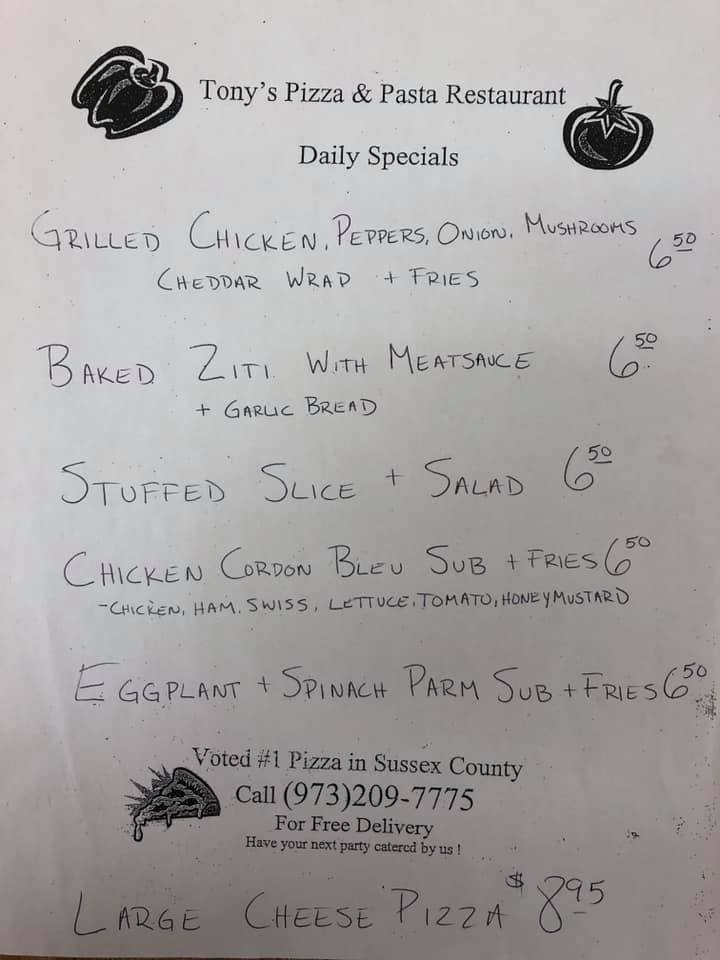 Tony's Pizza & Pasta Restaurant
Daily Specials
GRILLED CHICKEN, PEPPERS, ONION, MUSHROOMS 6 50
CHEDDAR WRAP + FRIES
BAKED ZITI WITH MEATSAUCE 6 50
+ GARLIC BREAD
STUFFED SLICE + SALAD 6 50
CHICKEN CORDON BLEU SUB + FRIES 6 50
-CHICKEN, HAM, SWISS, LETTUCE, TOMATO, HONEY MUSTARD
EGGPLANT + SPINACH PARM SUB + FRIES 6 50
Voted #1 Pizza in Sussex County
Call (973)209-7775
For Free Delivery
Have your next party catered by us !
LARGE CHEESE PIZZA $ 8.95